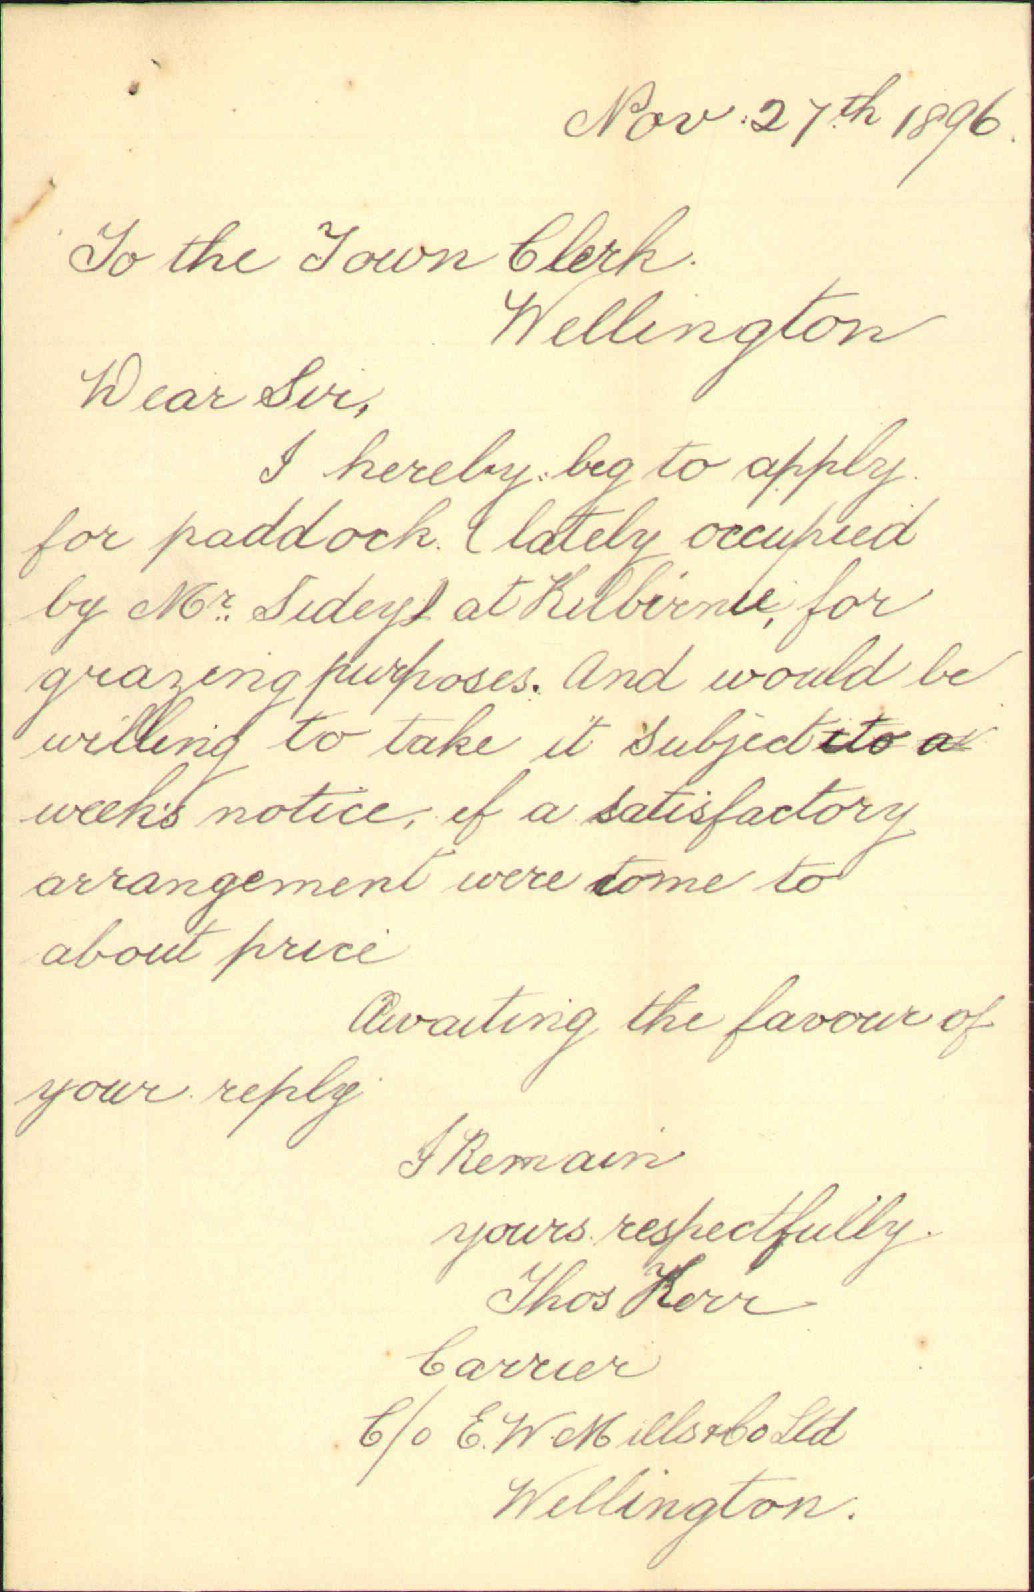 Nov. 27th 1896.
To the Town Clerk.
Wellington
Dear Sir,
I hereby beg to apply
for paddock (lately occupied
by Mr. Sidey) at Kilbirnie, for
grazing purposes. And would be
willing to take it subject to a
week's notice, if a satisfactory
arrangement were come to
about price
Awaiting the favour of
your reply
I Remain
yours respectfully.
Thos Kerr
Carrier
C/o E. W. Mills & Co Ltd
Wellington.